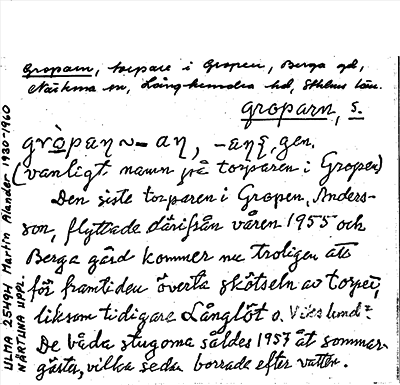 Groparn, torpare i Gropen, Berga gd,
Närtuna sn, Långhundra hd, Sthlms län.
groparn, s.
gròpaṇ ~ -aṇ, -aṇs, gen.
(vanligt namn på torparen i Gropen)
Den siste torparen i Gropen, Anders-
son, flyttade därifrån våren 1955 och
Berga gård kommer nu troligen att
för framtiden överta skötseln av torpet,
liksom tidigare Långlöt o.
De båda stugorna såldes 1957 åt sommar-
gäster, vilka sedan borrade efter vatten.
ULMA 25494 Martin Olander 1930-1960
NÄRTUNA UPPL.